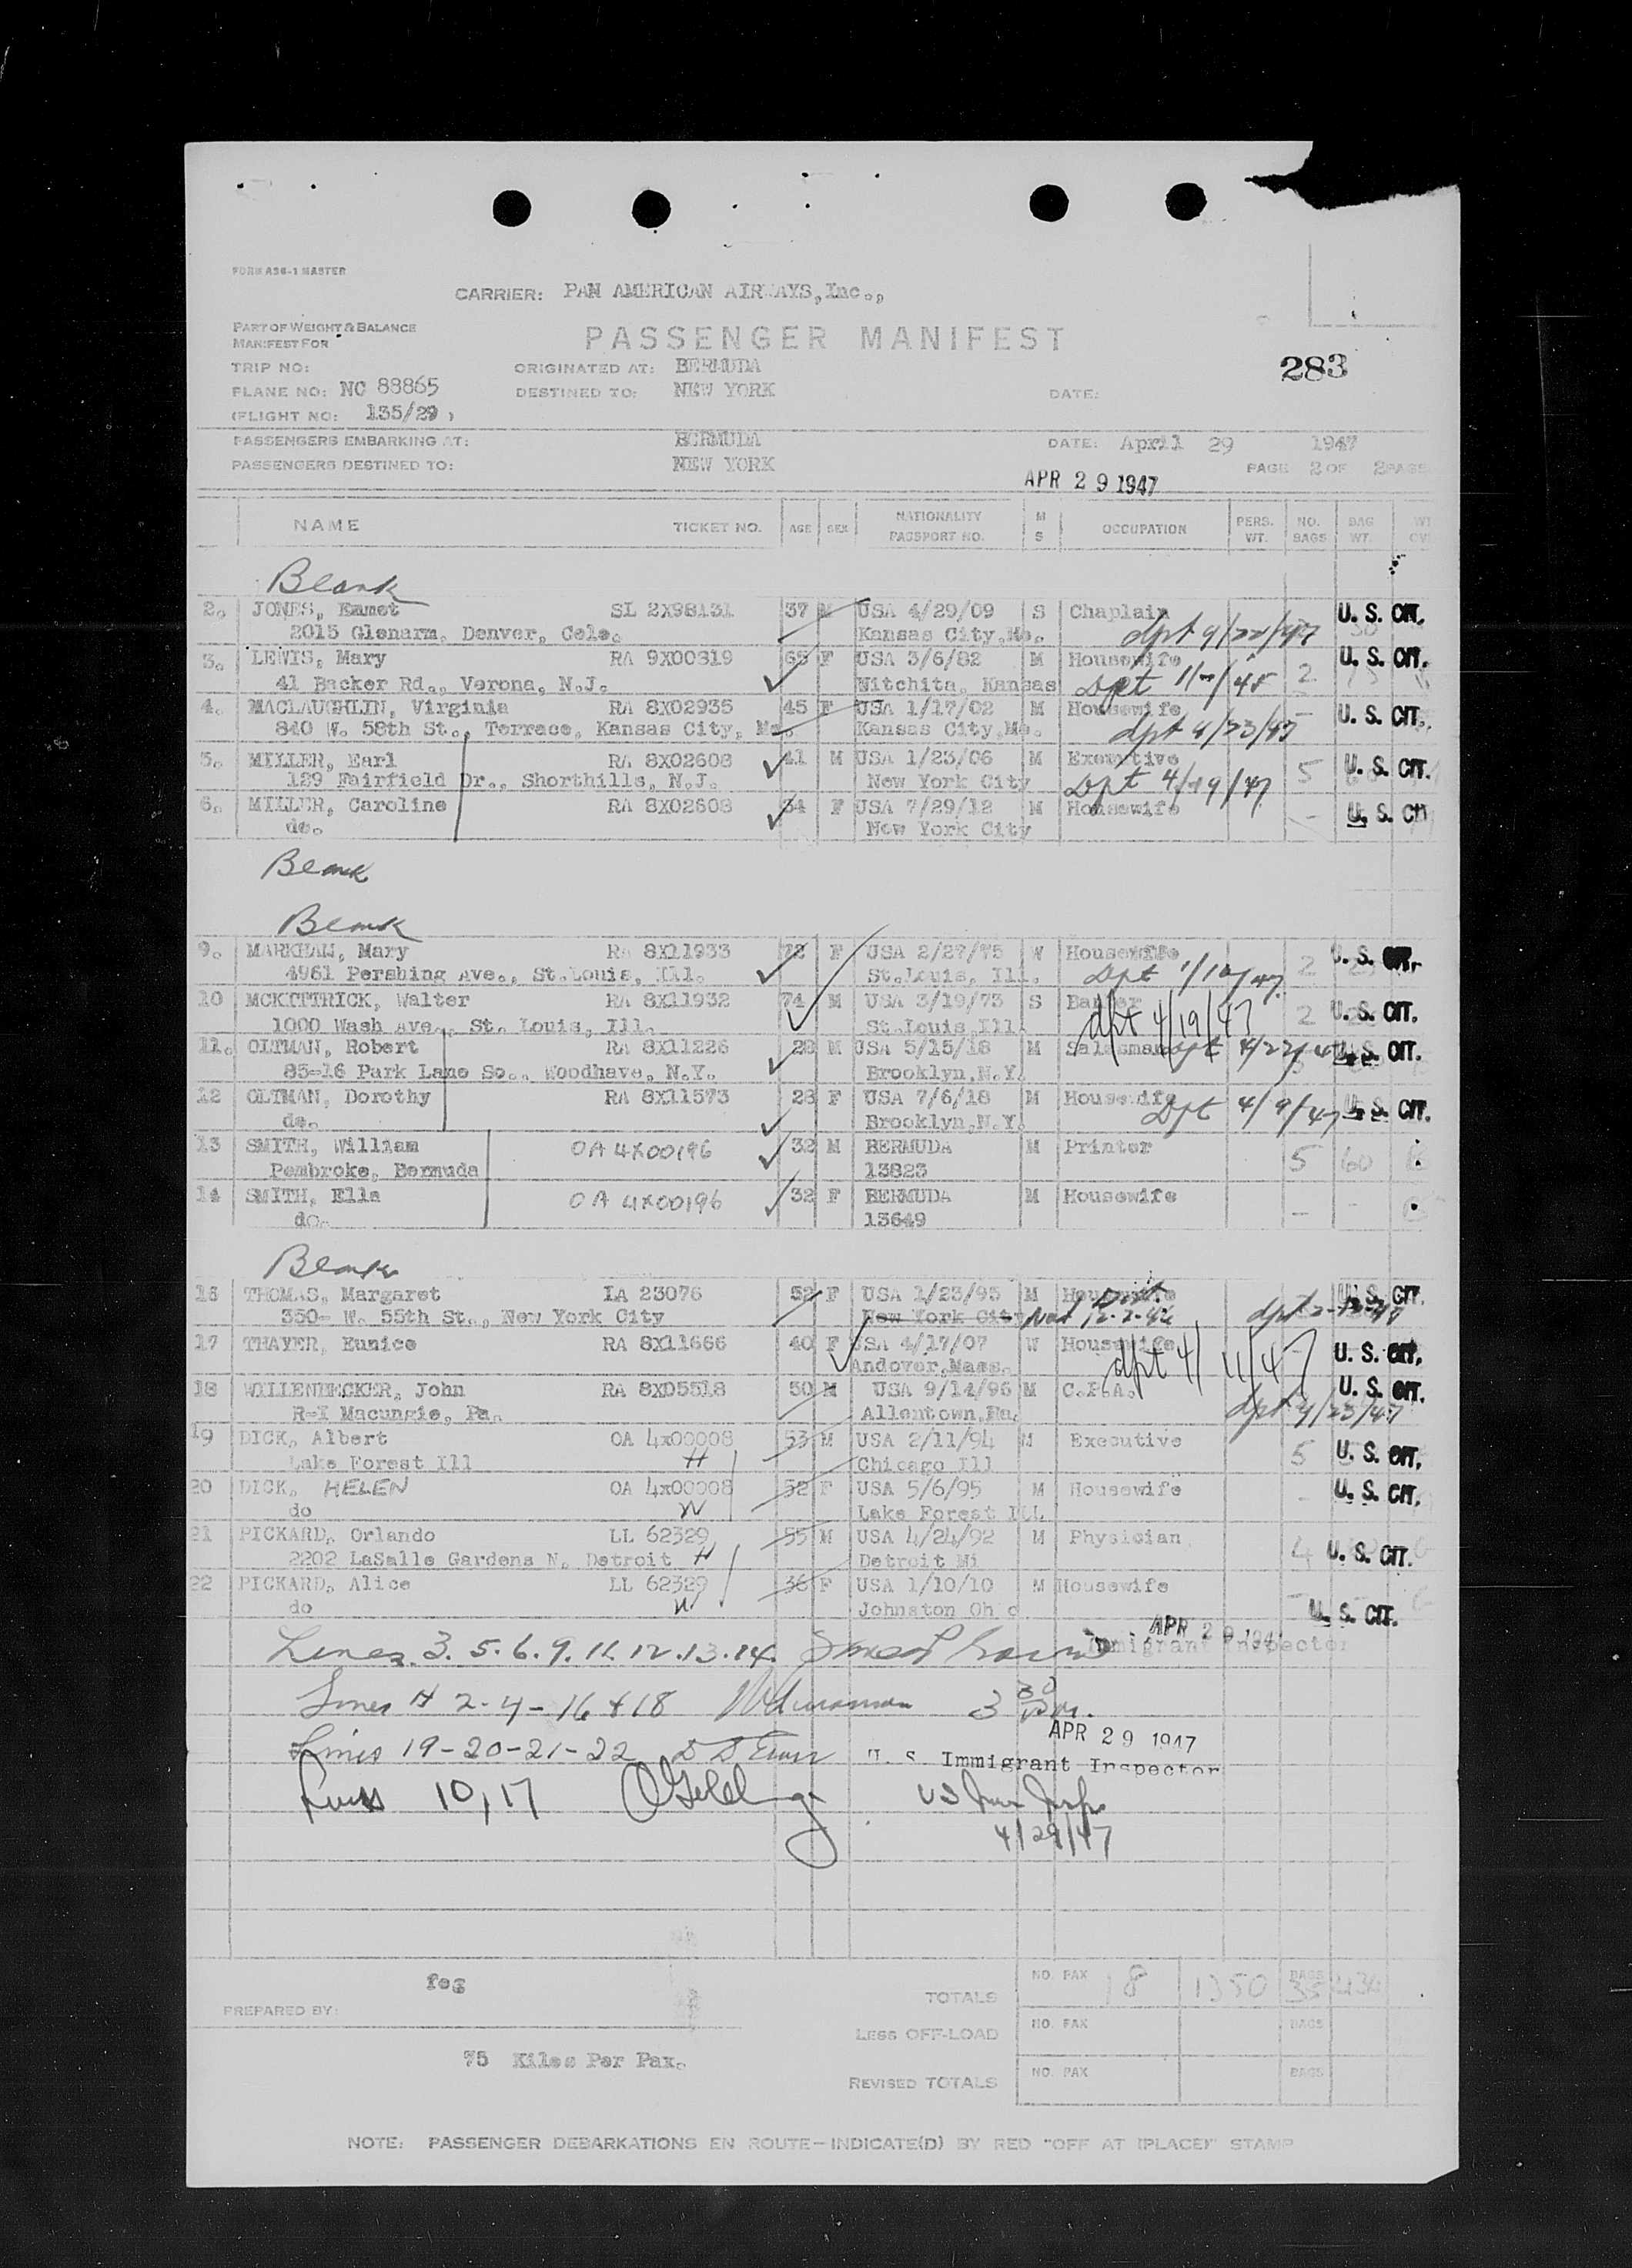 FORM A36-1 MASTER
CARRIER: PAN AMERICAN AIRWAYS, Inc.,
PART OF WEIGHT & BALANCE
MANIFEST FOR
PASSENGER MANIFEST
TRIP NO: ORIGINATED AT: BERMUDA 283
PLANE NO: NC 88865 DESTINED TO: NEW YORK DATE:
(FLIGHT NO: 135/29)
PASSENGERS EMBARKING AT: BERMUDA DATE: April 29 1947
PASSENGERS DESTINED TO: NEW YORK PAGE 2 OF 2 PAGES
APR 29 1947
NAME TICKET NO. AGE SEX NATIONALITY PASSPORT NO. M S OCCUPATION PERS. WT. NO. BAGS BAG WT.
Blank
2. JONES, Emmet SL 2X98131 37 M USA 4/29/09 S Chaplain U. S. CIT.
2015 Glenarm, Denver, Colo. Kansas City, Mo. dpt 9/22/47
3. LEWIS, Mary RA 9X00319 65 F USA 3/6/82 M Housewife U. S. CIT.
41 Backer Rd., Verona, N.J. Witchita, Kansas Dpt 11-/45 2
4. MACLAUGHLIN, Virginia RA 8X02935 45 F USA 1/17/02 M Housewife - U. S. CIT.
840 W. 58th St., Terrace, Kansas City, Mo. Kansas City, Mo. dpt 4/23/47
5. MILLER, Earl RA 8X02608 41 M USA 1/23/06 M Executive 5 U. S. CIT.
129 Fairfield Dr., Shorthills, N.J. New York City Dpt 4/19/47
6. MILLER, Caroline RA 8X02608 34 F USA 7/29/12 M Housewife - U. S. CIT
do. New York City
Blank
Blank
9. MARKHAM, Mary RA 8X11933 72 F USA 2/27/75 W Housewife U. S. CIT.
4961 Pershing Ave., St.Louis, Ill. St.Louis, Ill. Dpt 1/10/47 2
10 MCKITTRICK, Walter RA 8X11932 74 M USA 3/19/73 S Banker 2 U. S. CIT.
1000 Wash Ave., St. Louis, Ill. St.Louis, Ill. dpt 4/19/47
11. OLTMAN, Robert RA 8X11226 28 M USA 5/15/18 M Salesman dpt 4/22/47 U. S. CIT.
85-16 Park Lane So., Woodhave, N.Y. Brooklyn, N.Y.
12 OLTMAN, Dorothy RA 8X11573 28 F USA 7/6/18 M Housewife U. S. CIT.
do. Brooklyn, N.Y. Dpt 4/9/47
13 SMITH, William OA 4X00196 32 M BERMUDA M Printer 5 60
Pembroke, Bermuda 13823
14 SMITH, Ella OA 4X00196 32 F BERMUDA M Housewife - -
do. 13649
Blank
16 THOMAS, Margaret LA 23076 52 F USA 1/23/95 M Housewife U. S. CIT.
350- W. 55th St., New York City New York City
17 THAYER, Eunice RA 8X11666 40 F USA 4/17/07 W Housewife U. S. CIT.
Andover, Mass. dpt 4/11/47
18 WOLLENBECKER, John RA 8XD5518 50 M USA 9/14/96 M C.P.A. U. S. CIT.
R-I Macungie, Pa. Allentown, Pa. dpt 4/23/47
19 DICK, Albert OA 4x00008 53 M USA 2/11/94 M Executive 5 U. S. CIT.
Lake Forest Ill H Chicago Ill
20 DICK, HELEN OA 4x00008 52 F USA 5/6/95 M Housewife - U. S. CIT.
do W Lake Forest ILL
21 PICKARD, Orlando LL 62329 55 M USA 4/24/92 M Physician 4 U. S. CIT.
2202 LaSalle Gardens N. Detroit H Detroit Mi
22 PICKARD, Alice LL 62329 36 F USA 1/10/10 M Housewife - U. S. CIT.
do W Johnston Oh o
Lines 3. 5. 6. 9. 11. 12. 13. 14. APR 29 1947 Immigrant Inspector
Lines # 2-4-16 & 18 3 30 P.M.
APR 29 1947
Lines 19-20-21-22 U. S. Immigrant Inspector
Lines 10, 17 US Imm Insp.
4/29/47
feg
PREPARED BY:
75 Kilos Per Pax.
TOTALS NO. PAX 18 1350 BAGS 35 434
LESS OFF-LOAD NO. PAX BAGS
REVISED TOTALS NO. PAX BAGS
NOTE: PASSENGER DEBARKATIONS EN ROUTE—INDICATE(D) BY RED "OFF AT (PLACE)" STAMP